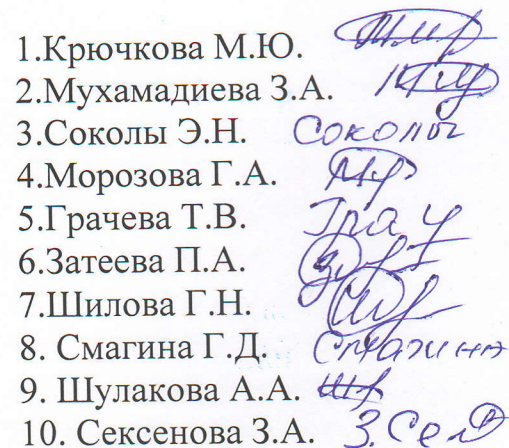 1.Крючкова М.Ю.
2.Мухамадиева З.А.
3.Соколы Э.Н. Соколы
4.Морозова Г.А.
5.Грачева Т.В.
6.Затеева П.А.
7.Шилова Г.Н.
8. Смагина Г.Д.
9. Шулакова А.А.
10. Сексенова З.А.